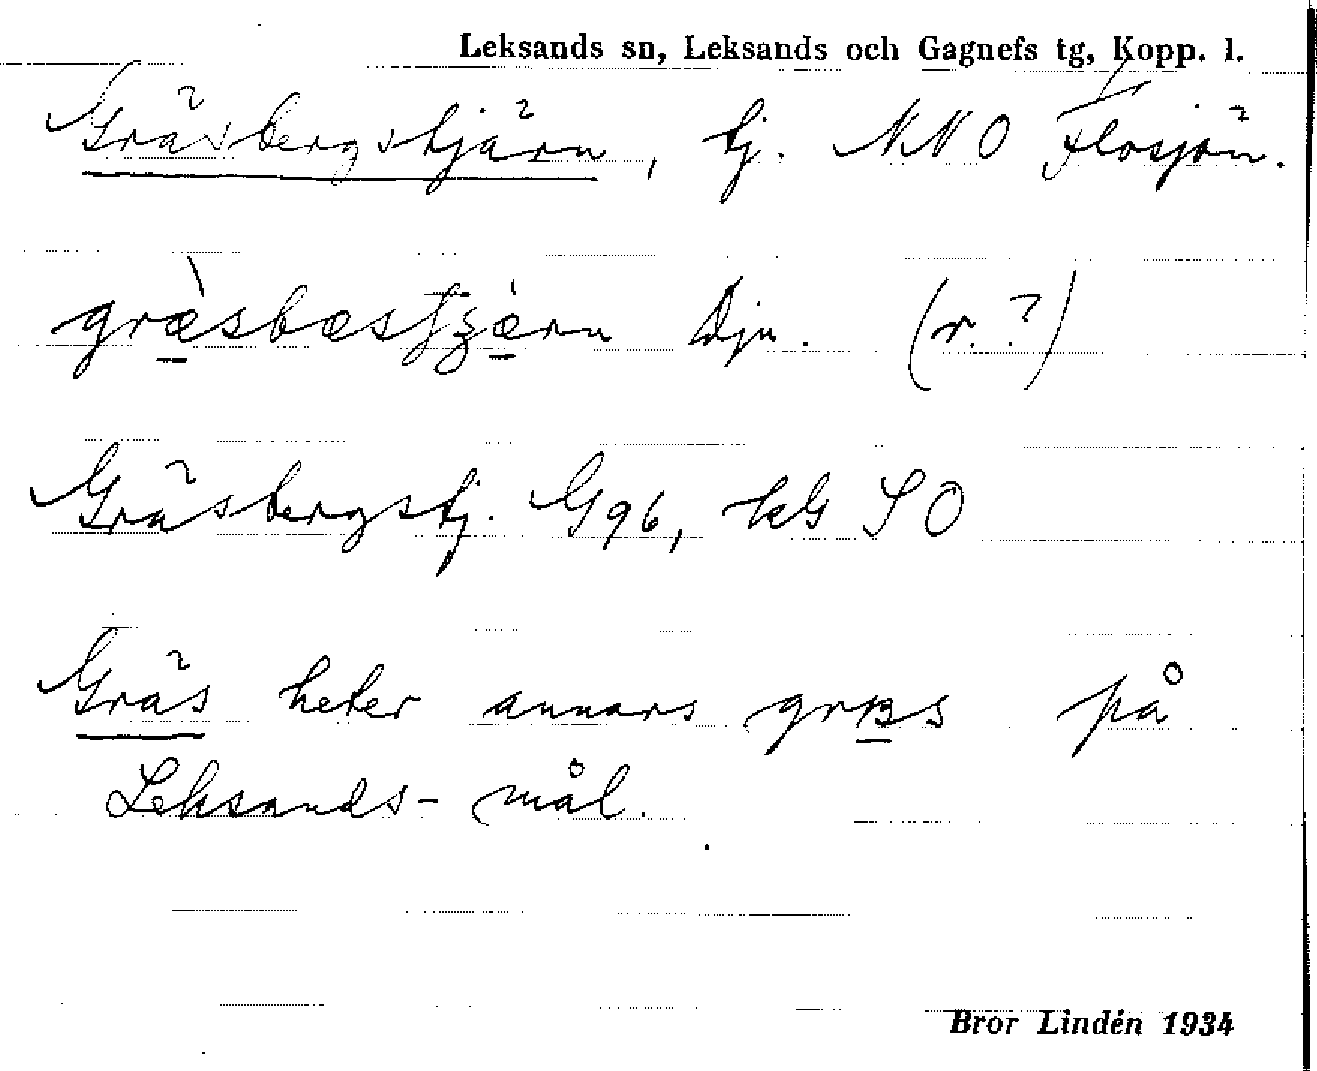 Leksands sn, Leksands och Gagnefs tg, Kopp. l.
Gräsbergstjärn, tj. NNO Flosjön.
græ̀sbæstʒæ̀rn Djn. (r.?)
Gräsbergstj. G96, SO
Gräs heter annars på
Leksands-mål.
Bror Lindén 1934